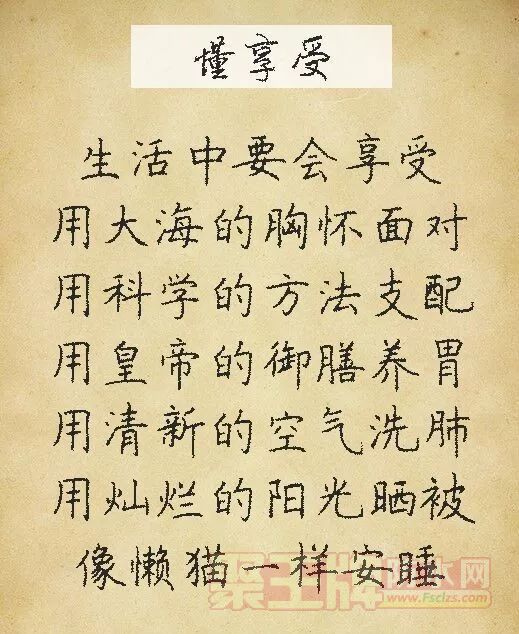 懂享受
生活中要会享受
用大海的胸怀面对
用科学的方法支配
用皇帝的御膳养胃
用清新的空气洗肺
用灿烂的阳光晒被
像懒猫一样安睡
www.Fsclzs.com